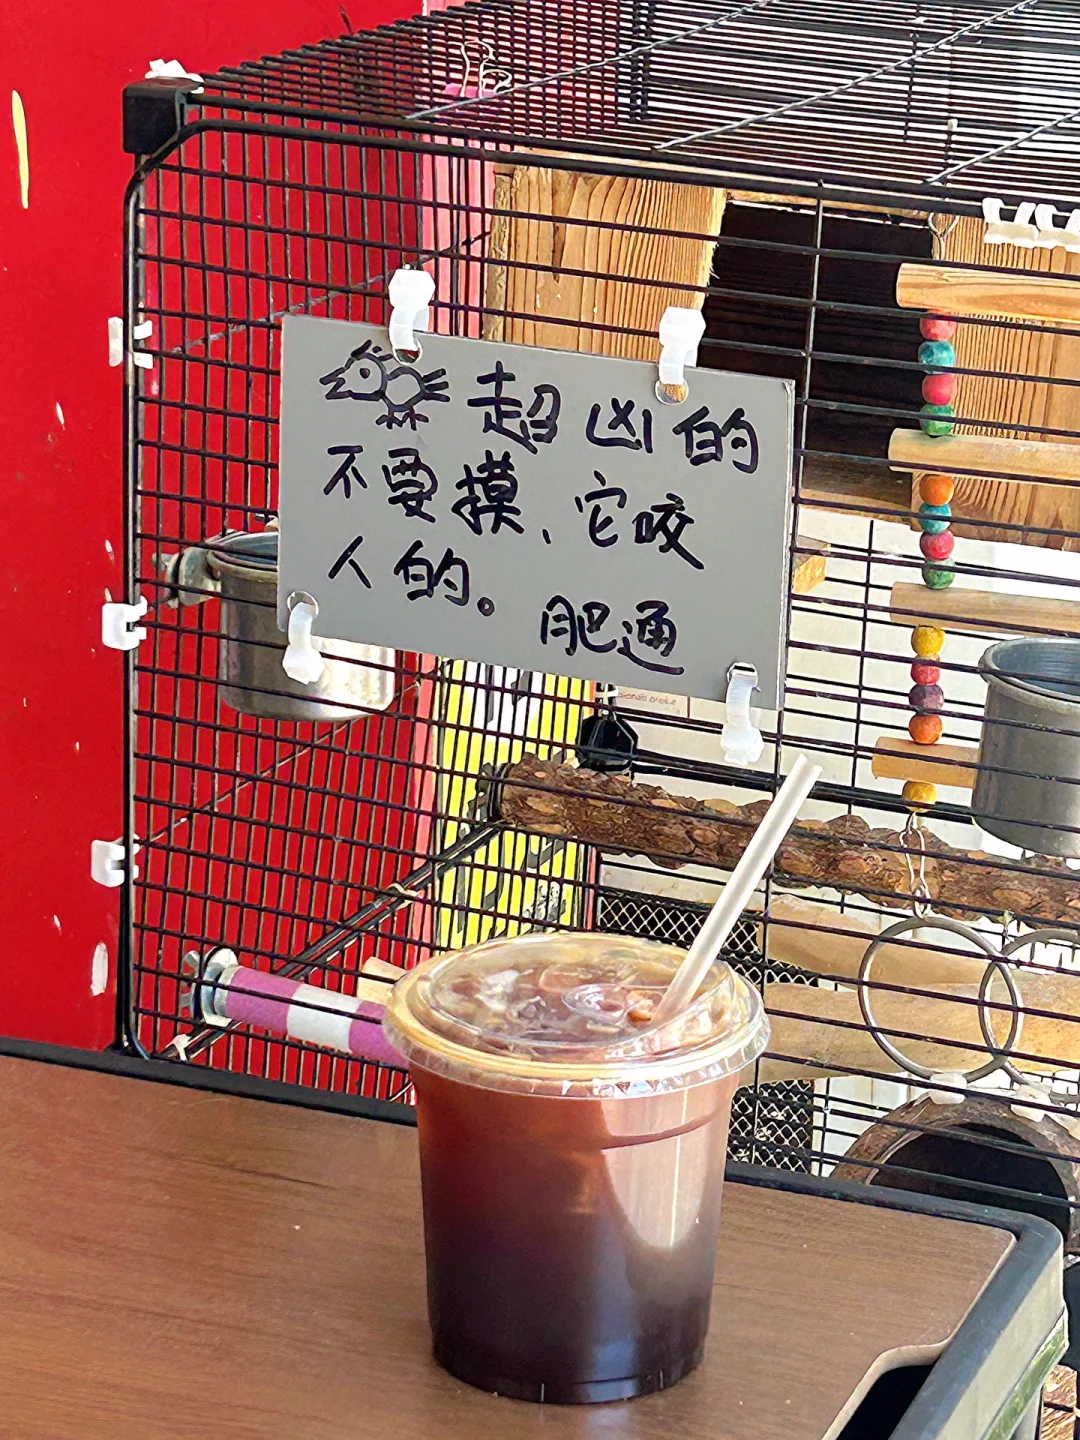 超凶的
不要摸、它咬
人的。
肥通